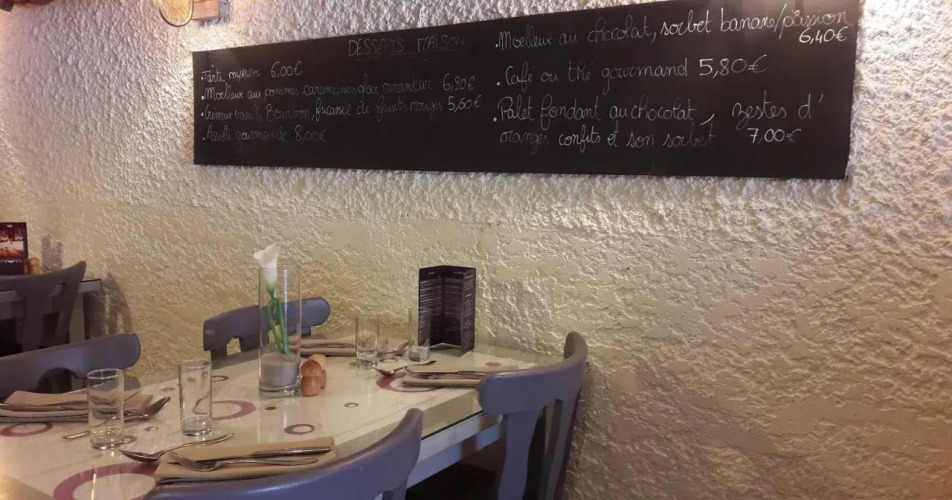 DESSERTS MAISON
• Tarte 6,00€
• Moelleux aux pommes caramélisées, glace 6,20€
• Crémeux vanille Bourbon, fricassé de fruits rouges 5,60€
• Assiette gourmande 8,00€
• Moelleux au chocolat, sorbet banane/passion
6,40€
• Café ou thé gourmand 5,80€
• Palet fondant au chocolat, zestes d'
oranges confits et son sorbet 7,00€